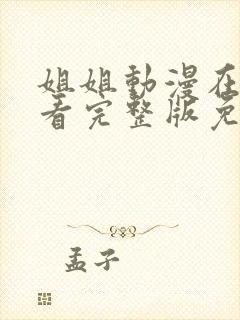 姐姐動漫在
看完整版免
孟子